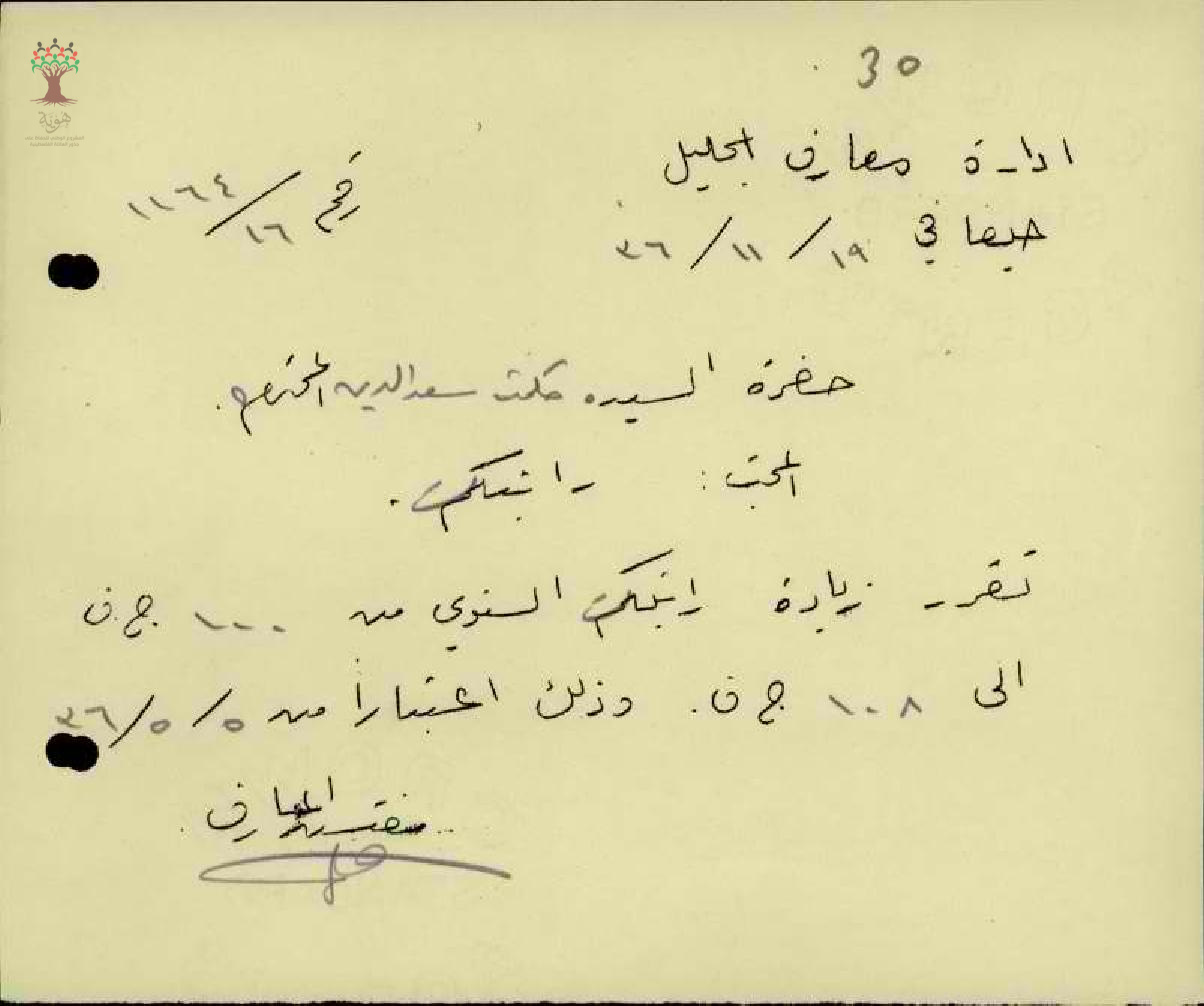 30
ادارة معارف الجليل
رقم ١١٦٤/١٦
حيفا في ١٩/١١/٣٦
حضرة السيده حكمت سعد الدين المحترم.
المبحث: راتبكم.
تقرر زيادة راتبكم السنوي من ١٠٠ ج.ف
الى ١٠٨ ج ف. وذلك اعتباراً من ٥/٥/٣٦
مفتش المعارف
هوية